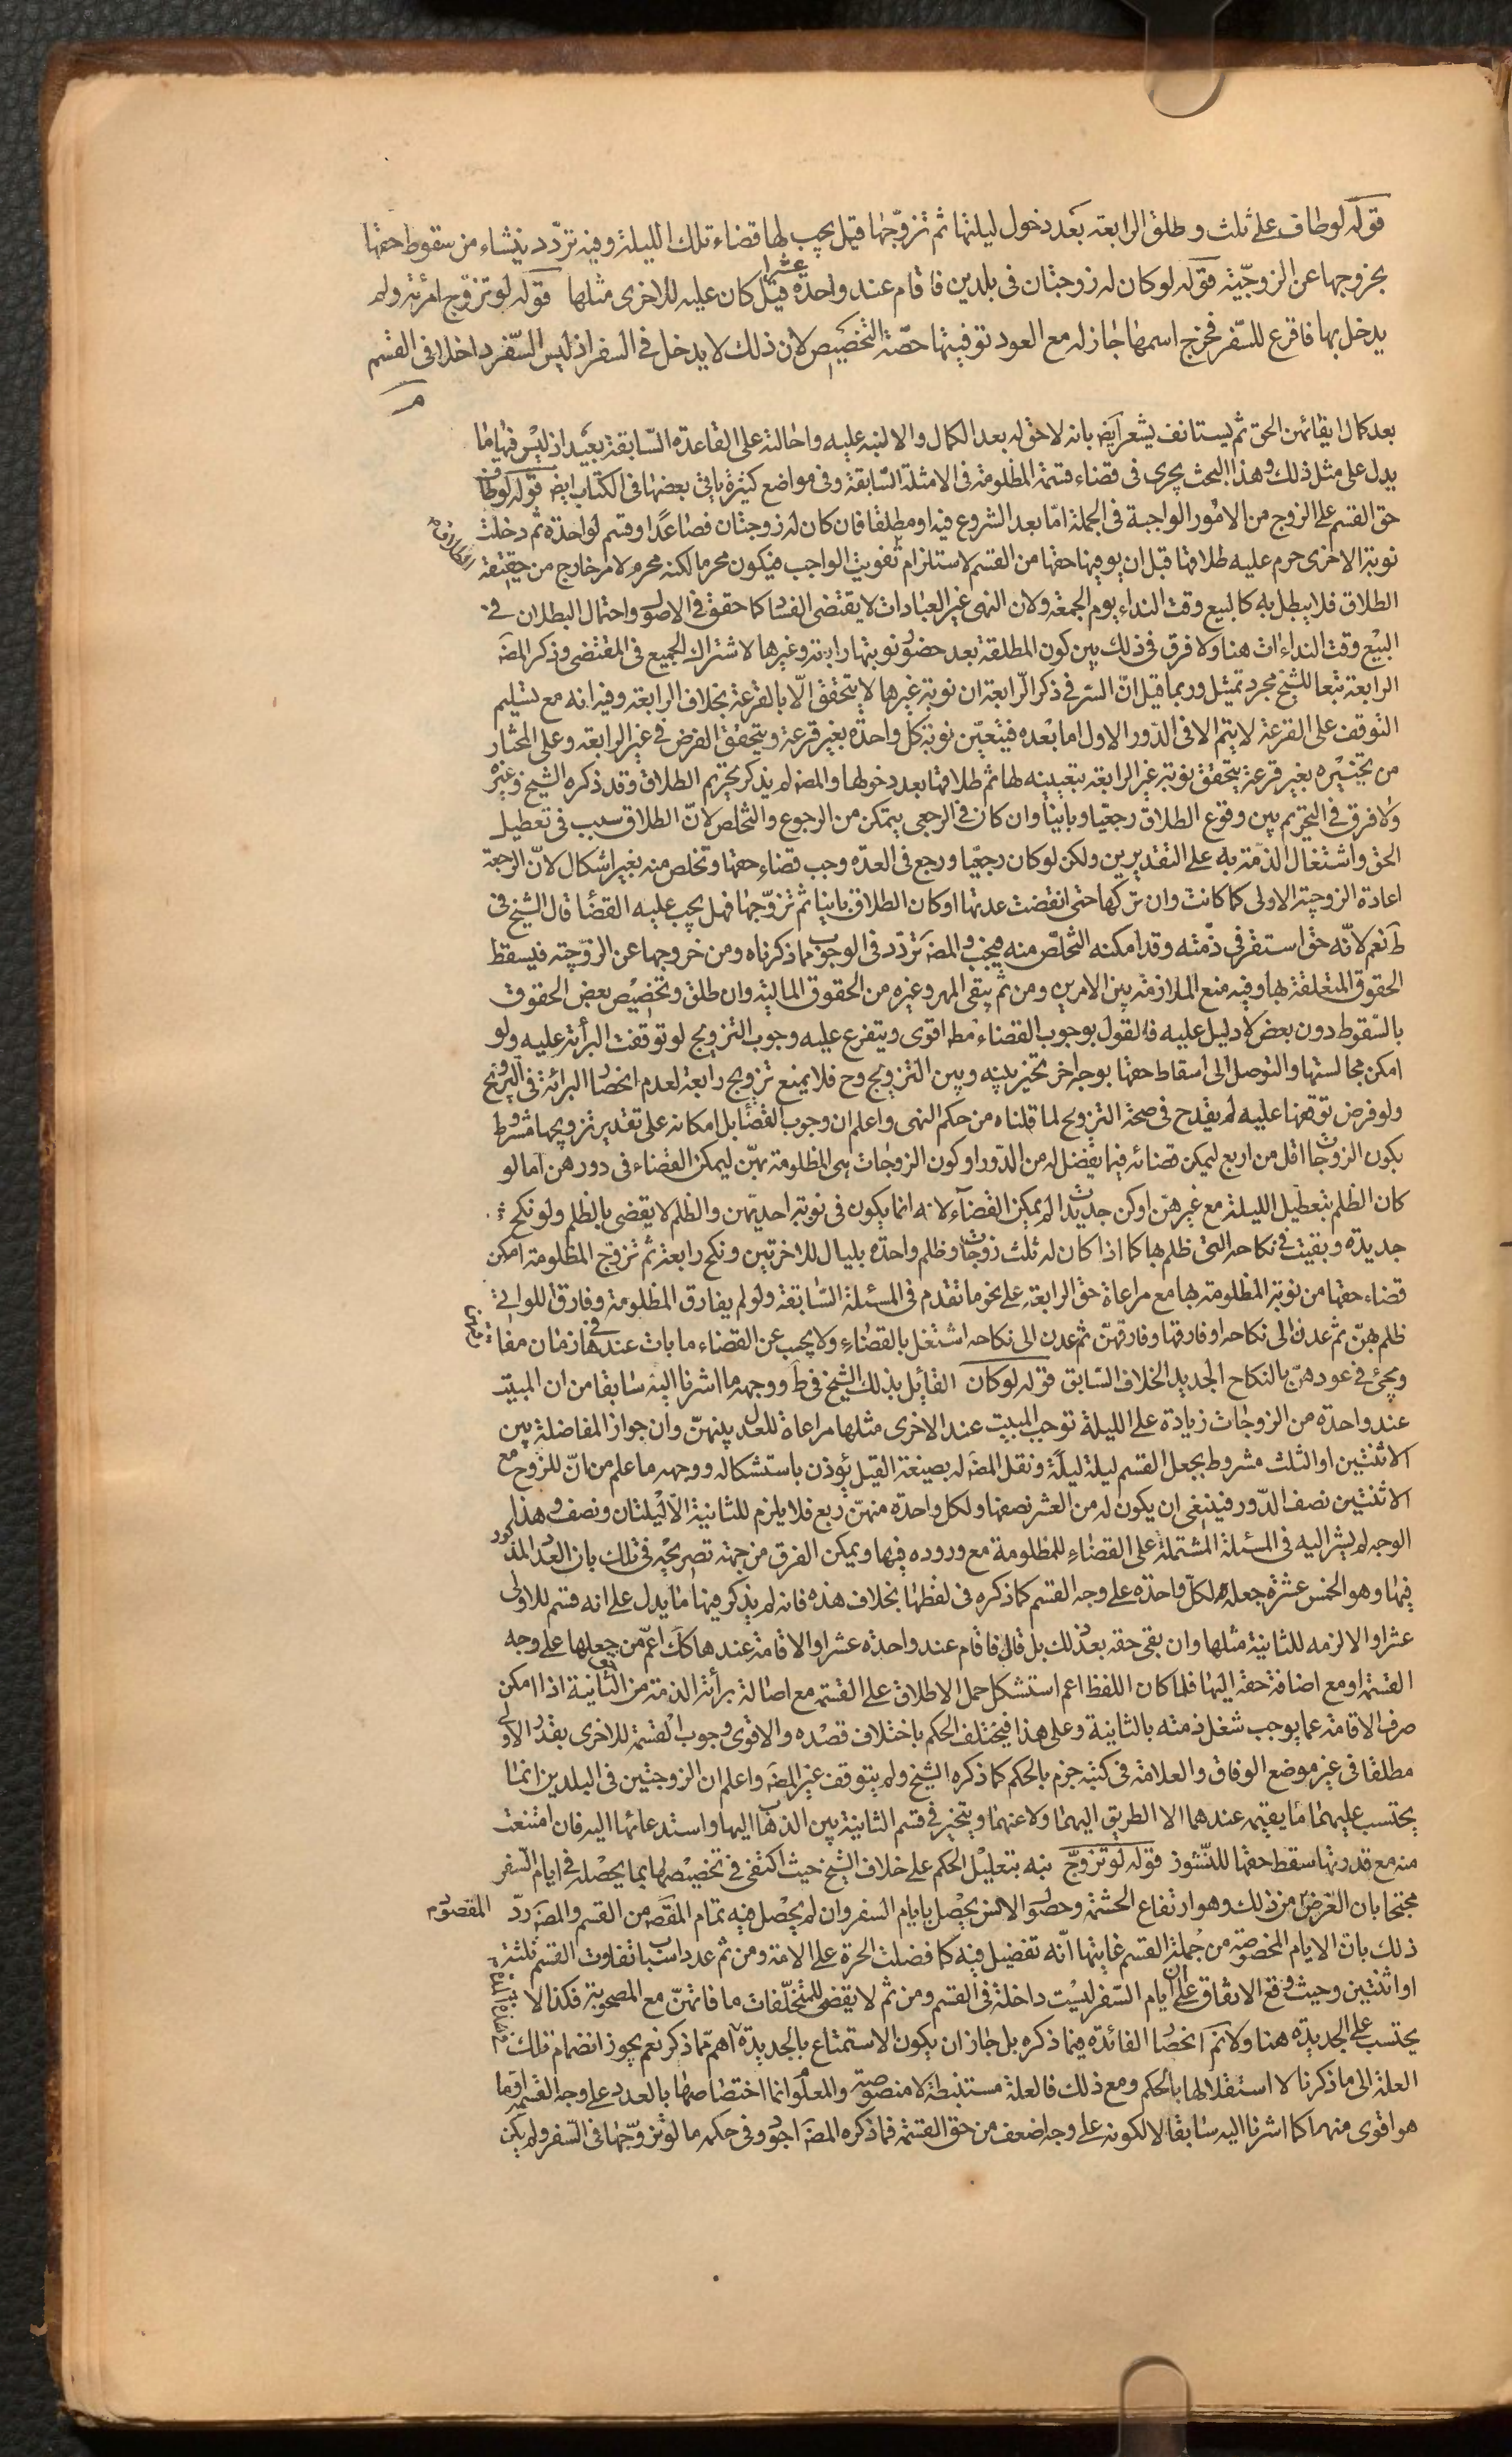 قوله لو طاف على ثلث وطلق الرابعة بعد دخول ليلتها ثم تزوّجها قيل يجب لها قضاء تلك الليلة وفيه تردّد ينشاء من سقوط حقها
بخروجها عن الزوجيّة قوله لو كان له زوجتان فى بلدين فاقام عند واحدة عشرا قيل كان عليه للاخرى مثلها قوله لو تزوّج امرئة ولم
يدخل بها فاقرع للسّفر فخرج اسمها جاز له مع العود توفيتها حصّة التخصيص لان ذلك لا يدخل فى السفر اذ ليس السّفر داخلا فى القسم
بعد كمال ايفائهن الحق ثم يستانف يشعر ايض بانه لا حق له بعد الكمال والا لنبه عليه واحالته على القاعدة السّابقة بعيد اذ ليس فيها ما
يدل على مثل ذلك وهذا البحث يجرى فى قضاء قسمة المظلومة فى الامثلة السّابقة وفى مواضع كثيرة ياتى بعضها فى الكتاب ايض قوله لو طاف
حق القسم على الزوج من الامور الواجبة فى الجملة امّا بعد الشروع فيه او مطلقا فان كان له زوجتان فصاعدًا وقسم لواحدة ثم دخلت
نوبة الاخرى حرم عليه طلاقها قبل ان يوفيها حقها من القسم لاستلزام تفويت الواجب فيكون محرما لكنه محرم لامر خارج من حقيقة
الطلاق فلا يبطل به كالبيع وقت النداء يوم الجمعة ولان النهى غير العبادات لا يقتضى الفساد كما حقق فى الاصول واحتمال البطلان فى
البيع وقت النداء ات هنا ولا فرق فى ذلك بين كون المطلقة بعد حضور نوبتها رابعة وغيرها لاشتراك الجميع فى المقتضى وذكر المصَ
الرابعة تبعا للشيخ مجرد تمثيل وربما قيل انّ السّر فى ذكر الرّابعة ان نوبة غيرها لا يتحقق الّا بالقرعة بخلاف الرابعة وفيه انه مع تسليم
التوقف على القرعة لا يتم الا فى الدّور الاول اما بعده فيتعيّن نوبة كل واحدة بغير قرعة ويتحقق الفرض فى غير الرابعة وعلى المختار
من تخييره بغير قرعة يتحقق نوبة غير الرابعة بتعيينه لها ثم طلاقها بعد دخولها والمصَ لم يذكر تحريم الطلاق وقد ذكره الشيخ وغيره
ولا فرق فى التحريم بين وقوع الطلاق رجعيّا وباينا وان كان فى الرجعى يتمكن من الرجوع والتخلص لانّ الطلاق سبب فى تعطيل
الحق واشتغال الذمّة به على التقديرين ولكن لو كان رجعيّا ورجع فى العدّة وجب قضاء حقها وتخلص منه بغير اشكال لانّ الرجعة
اعادة الزوجيّة الاولى كما كانت وان تركها حتى انقضت عدتها او كان الطلاق باينا ثم تزوّجها فهل يجب عليه القضا قال الشيخ فى
طَ نعم لانّه حق استقر فى ذمّته وقد امكنه التخلّص منه فيجب والمصَ تردّد فى الوجوب مما ذكرناه ومن خروجها عن الزوّجيّة فيسقط
الحقوق المتعلقة بها وفيه منع الملازمة بين الامرين ومن ثم يبقى المهر وغيره من الحقوق المالية وان طلق وتخصيص بعض الحقوق
بالسّقوط دون بعض لا دليل عليه فالقول بوجوب القضاء مطَ اقوى ويتفرع عليه وجوب التزويج لو توقفت البرأة عليه ولو
امكن مجالستها والتوصل الى اسقاط حقها بوجه اخر تخيّر بينه وبين التزويج وح فلا يمنع تزويج رابعة لعدم انحصار البرائة فى التزويج
ولو فرض توقفها عليه لم يقدح فى صحّة التزويج لما قلناه من حكم النهى واعلم ان وجوب القضا بل امكانه على تقدير تزويجها مشروط
بكون الزوجات اقل من اربع ليمكن قضائه فيما يفضل له من الدّور او كون الزوجات هى المظلومة بهنّ ليمكن القضاء فى دورهن امّا لو
كان الظلم بتعطيل الليلة مع غيرهنّ او كن جديدات لم يمكن القضاء لانه انما يكون فى نوبة احديهن والظلم لا يقضى بالظلم ولو نكح
جديدة وبقيت فى نكاحه التى ظلم بها كما اذا كان له ثلث زوجات وظلم واحدة بليال للاخرتين ونكح رابعة ثم تزوج المظلومة امكن
قضاء حقها من نوبة المظلومة بها مع مراعاة حق الرابعة على نحو ما تقدم فى المسئلة السّابقة ولو لم يفارق المظلومة وفارق اللواتى
ظلم بهنّ ثم عدن الى نكاحه او فارقها وفارقهنّ ثم عدن الى نكاحه اشتغل بالقضاءِ ولا يحسب عن القضاء ما بات عندها فى زمان مفارقة
ويجئ فى عودهنّ بالنكاح الجديد الخلاف السّابق قوله لو كان القائل بذلك الشيخ فى طَ ووجهه ما اشرنا اليه سابقا من ان المبيت
عند واحدة من الزوجات زيادة على الليلة توجب المبيت عند الاخرى مثلها مراعاة للعدل بينهنّ وان جواز المفاضلة بين
الاثنتين او الثلث مشروط بجعل القسم ليلة ليلة ونقل المصَ له بصيغة القيل يؤذن باستشكاله ووجهه ما علم من انّ للزوج مع
الاثنتين نصف الدّور فينبغى ان يكون له من العشر نصفها ولكل واحدة منهنّ ربع فلا يلزم للثانية الّا ليلتان ونصف وهذا
الوجه لم يشر اليه فى المسئلة المشتملة على القضاءِ للمظلومة مع وروده فيها ويمكن الفرق من جهة تصريحه فى تلك بان العدد المذكور
فيها وهو الخمس عشرة جعله لكلّ واحدة على وجه القسم كما ذكره فى لفظها بخلاف هذه فانه لم يذكر فيها ما يدل على انه قسم للاولى
عشرا والا لزمه للثانية مثلها وان بقى حقه بعد ذلك بل قال فاقام عند واحدة عشرا والاقامة عندها كك اعمّ من جعلها على وجه
القسمة او مع اضافة حقه اليها فلما كان اللفظ اعم استشكل حمل الاطلاق على القسمة مع اصالة برأة الذمة من حق الثانية اذا امكن
صرف الاقامة عما يوجب شغل ذمته بالثانية وعلى هذا فيختلف الحكم باختلاف قصده والاقوى وجوب القسمة للاخرى بقدر الاولى
مطلقا فى غير موضع الوفاق والعلامة فى كتبه جزم بالحكم كما ذكره الشيخ ولم يتوقف غير المصَ واعلم ان الزوجتين فى البلدين انما
يحتسب عليهما ما يقيم عندهما الا الطريق اليهما ولا عنهما ويتخير فى قسم الثانية بين الذهاب اليها واستدعائها اليه فان امتنعت
منه مع قدرتها سقط حقها للنّشوز قوله لو تزوجّ نبه بتعليل الحكم على خلاف الشيخ حيث اكتفى فى تخصيصها بما يحصل فى ايام السّفر
محتجا بان الغرض من ذلك وهو ارتفاع الحشمة وحصول الانس يحصل بايام السفر وان لم يحصل فيه تمام المقصَ من القسم والمصَ ردّ
ذلك بان الايام المخصوصة من جملة القسم غايتها انّه تفضيل فيه كما فضلت الحرة على الامة ومن ثم عدد اسباب تفاوت القسم ثلثة
او اثنتين وحيث وقع الاتفاق على ان ايام السّفر ليست داخلة فى القسم ومن ثم لا يقضى للمتخلّفات ما فاتهنّ مع المصحوبة فكذا لا
يحتسب على الجديدة هنا ولا نمَ انحصار الفائدة فيما ذكره بل جاز ان يكون الاستمتاع بالجديدة اهم مما ذكر نعم يجوز انضمام تلك
العلة الى ما ذكرنا لا استقلالها بالحكم ومع ذلك فالعلة مستنبطة لا منصوصة والمعلوم انما اختصاصها بالعدد على وجه القسم او ما
هو اقوى منهما كما اشرنا اليه سابقا لا لكونه على وجه اضعف من حق القسمة فما ذكره المصَ اجود وفى حكمه ما لو تزوّجها فى السّفر ولم يكن